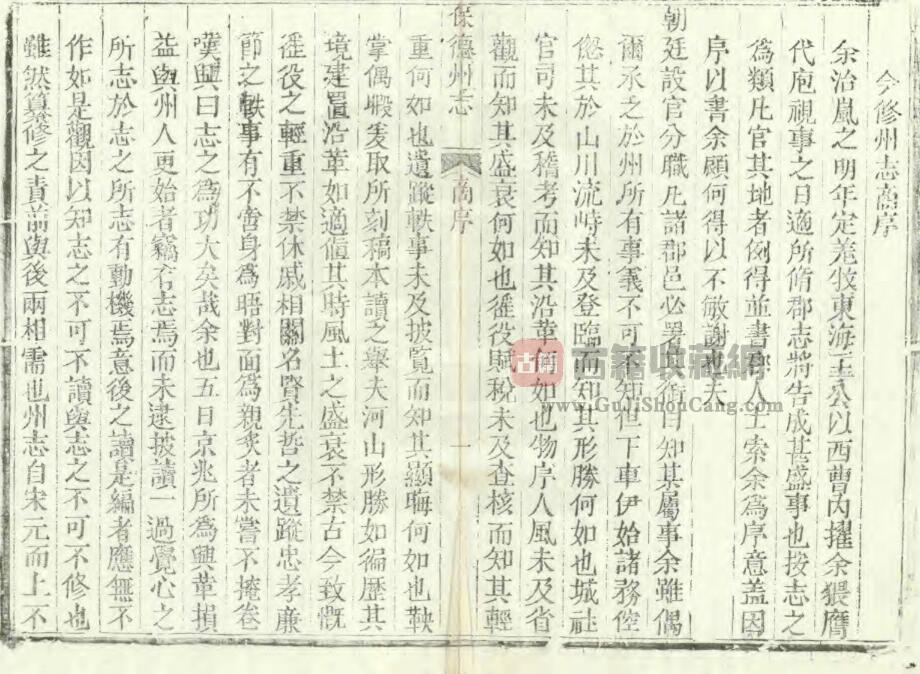 今修州志高序
余治嵐之明年定羗牧東海王公以西曹內擢余猥膺
代庖視事之日適所脩郡志將告成甚盛事也按志之
為類凡官其地者例得並書學人士索余為序意蓋因
序以書余顧何得以不敏謝也夫
朝廷設官分職凡諸郡邑必署其銜曰知某屬事余雖偶
爾承乏於州所有事義不可不知但下車伊始諸務倥
傯其於山川流峙未及登臨而知其形勝何如也城社
官司未及稽考而知其沿革何如也物序人風未及省
觀而知其盛衰何如也徭役賦稅未及查核而知其輕
保德州志
高序
一
重何如也遺蹤軼事未及披覧而知其顯晦何如也鞅
掌偶暇爰取所刻稿本讀之舉夫河山形勝如徧歷其
境建置沿革如適值其時風土之盛衰不禁古今致慨
徭役之輕重不禁休戚相關名賢先哲之遺蹤忠孝廉
節之軼事有不啻身為晤對面為親炙者未嘗不掩卷
嘆興曰志之為功大矣哉余也五日京兆所為興革損
益與州人更始者竊有志焉而未逮披讀一過覺心之
所志於志之所志有動機焉意後之讀是編者應無不
作如是觀因以知志之不可不讀與志之不可不修也
雖然纂修之責前與後兩相需也州志自宋元而上不
古籍收藏網
www.GuJiShouCang.com